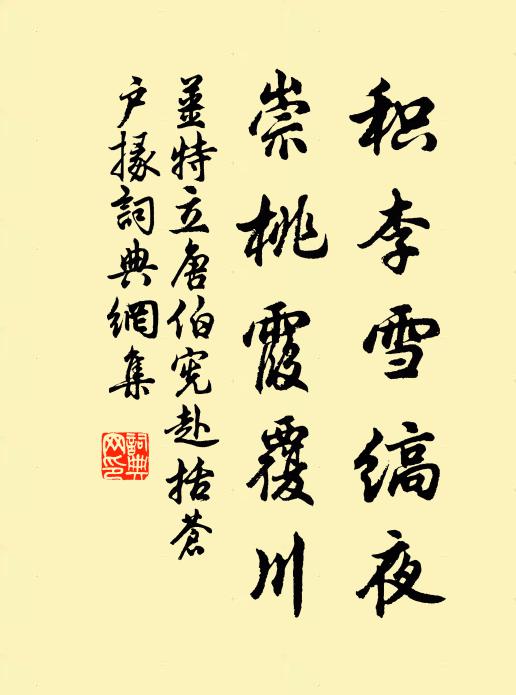 积李雪缟夜
崇桃霞覆川
姜特立唐伯宪赴括苍
户掾詞典網集
詞典
网印